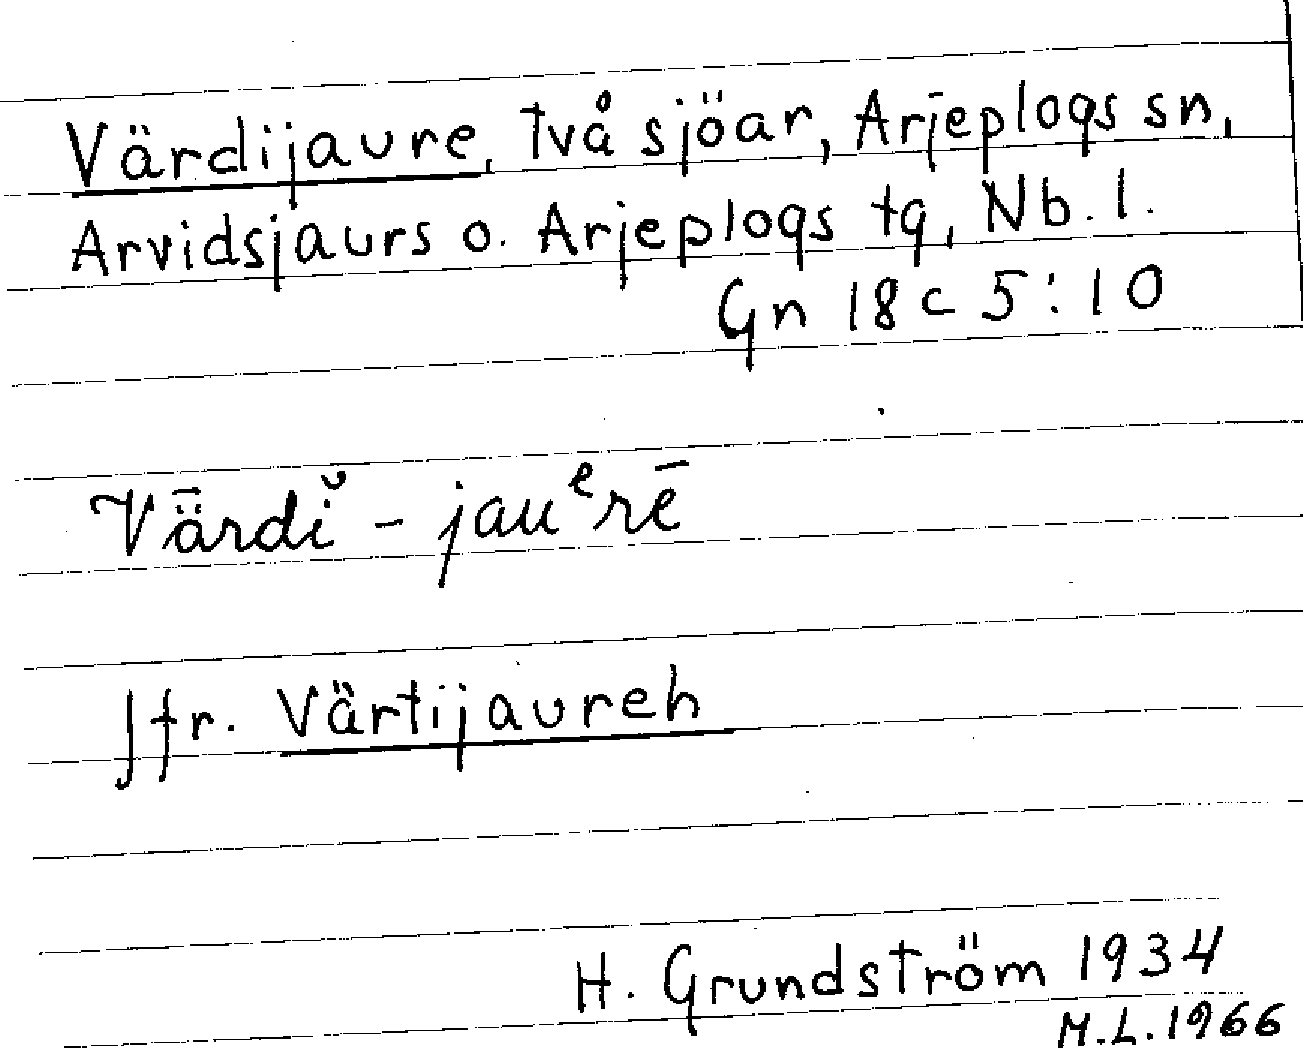 Värdijaure, två sjöar, Arjeplogs sn,
Arvidsjaurs o. Arjeplogs tg, Nb. l.
Gn 18 c 5:10
Vǟrdĭ - jauᵉrē
Jfr. Värtijaureh
H. Grundström 1934
M.L. 1966